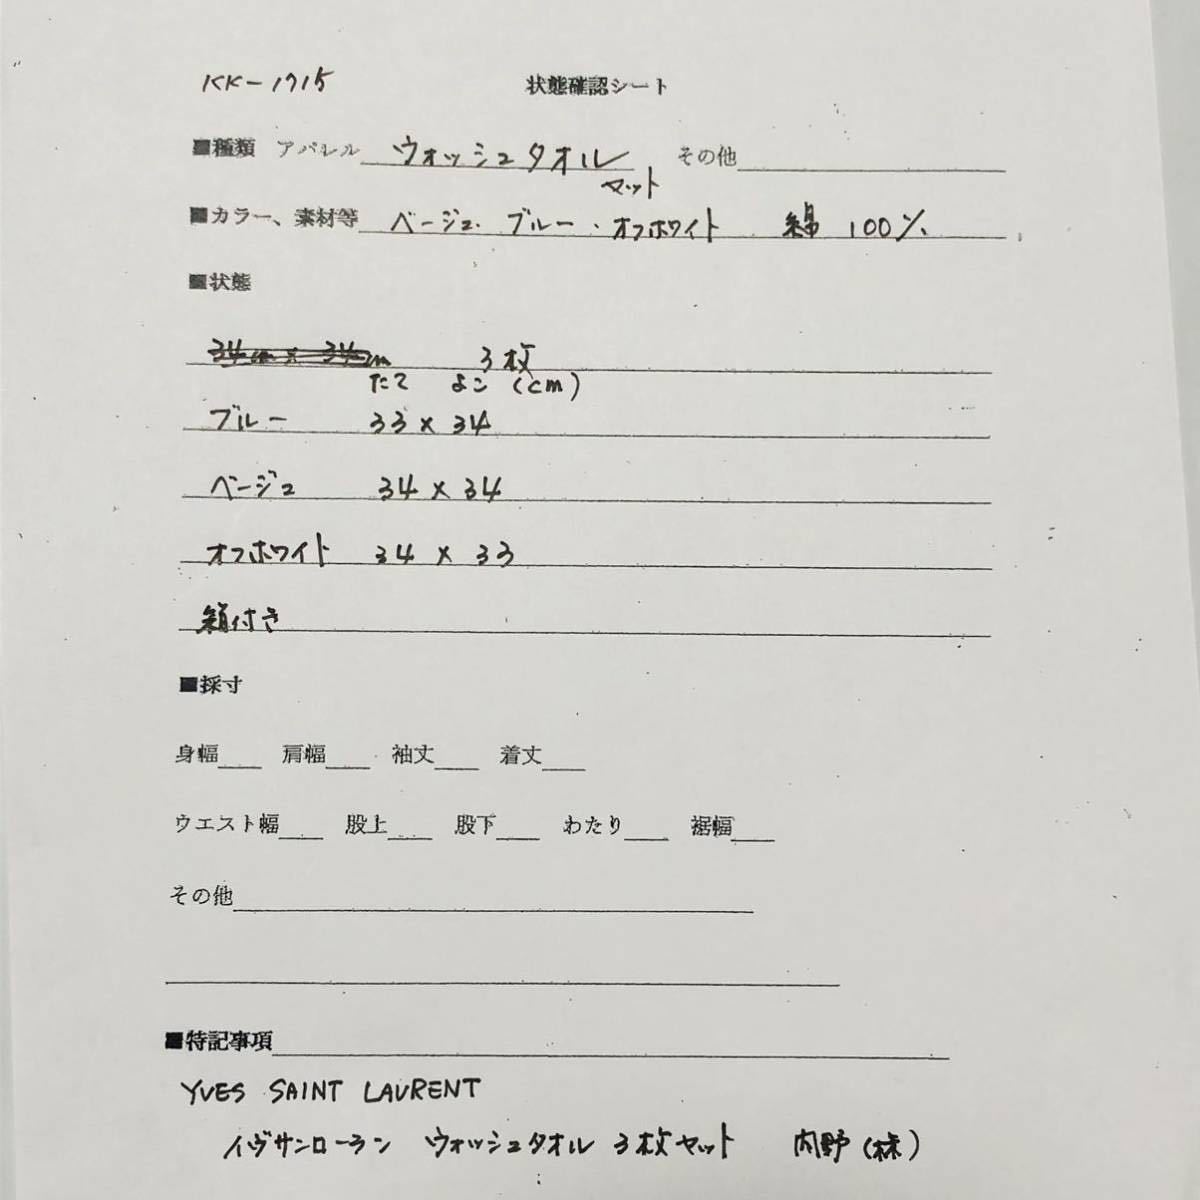 KK-1715 状態確認シート
■種類 アパレル ウォッシュタオル その他
セット
■カラー、素材等 ベージュ. ブルー . オフホワイト 綿 100%
■状態
34cm × 34cm 3枚
たて よこ (cm)
ブルー 33 × 34
ベージュ 34 × 34
オフホワイト 34 × 33
箱付き
■採寸
身幅 肩幅 袖丈 着丈
ウエスト幅 股上 股下 わたり 裾幅
その他
■特記事項
YVES SAINT LAURENT
イヴサンローラン ウォッシュタオル 3枚セット 内野(株)